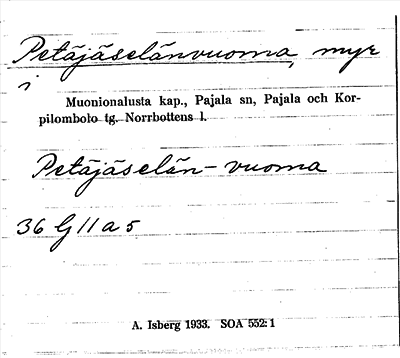 Petäjäselänvuoma, myr
i
Muonionalusta kap., Pajala sn, Pajala och Kor-
pilombolo tg. Norrbottens l.
Petäjäselän-vuoma
36 G 11 a 5
A. Isberg 1933. SOA 552: 1